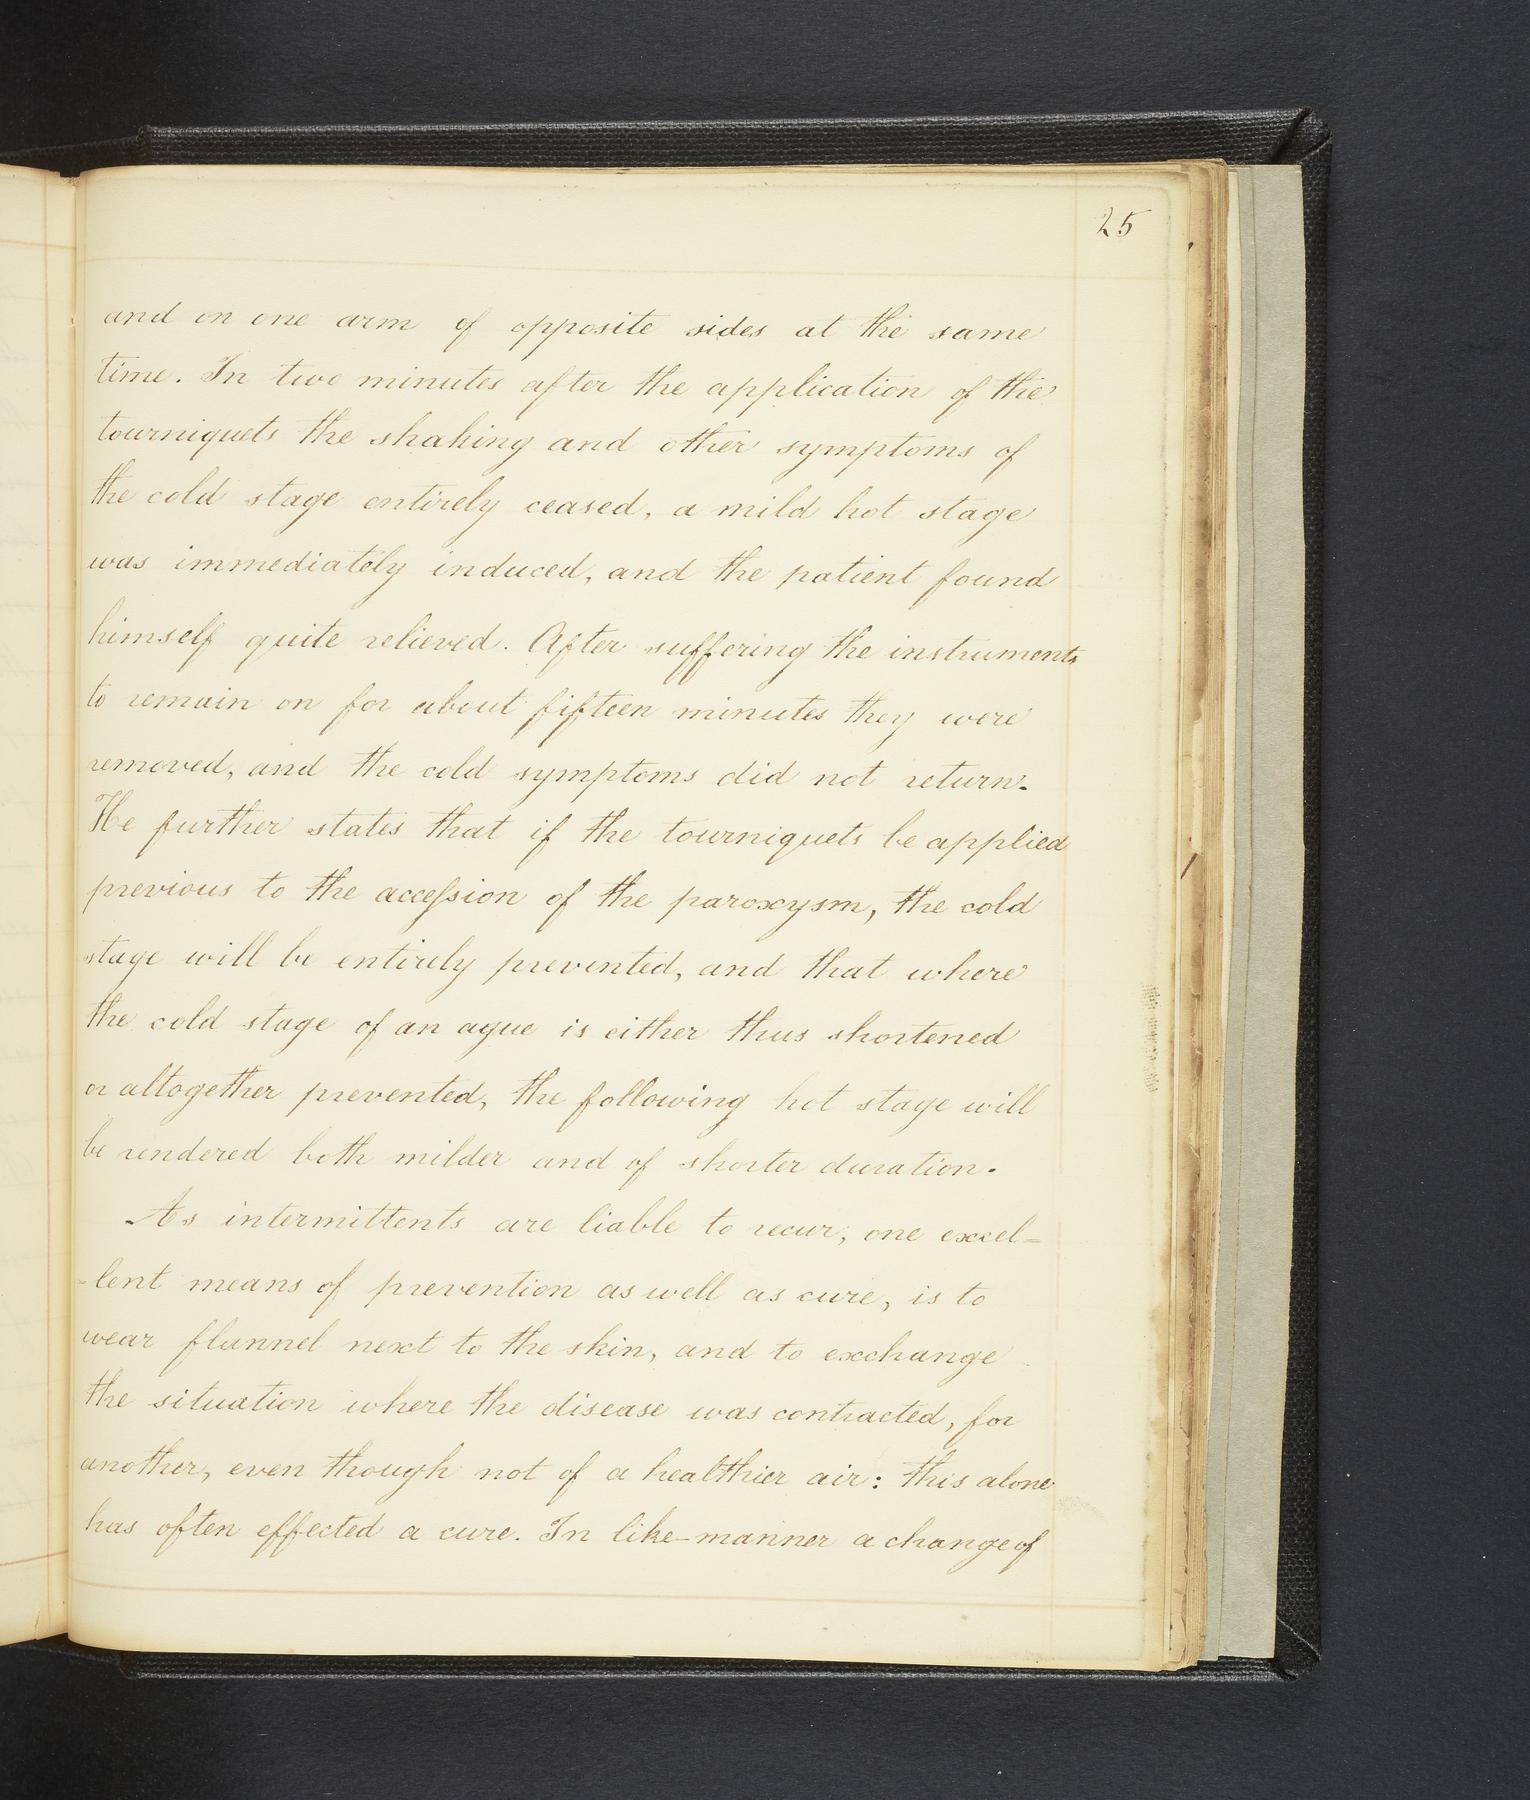 25
and on one arm of opposite sides at the same
time. In two minutes after the application of the
tourniquets the shaking and other symptoms of
the cold stage entirely ceased, a mild hot stage
was immediately induced, and the patient found
himself quite relieved. After suffering the instruments
to remain on for about fifteen minutes they were
removed, and the cold symptoms did not return.
He further states that if the tourniquets be applied
previous to the acceſsion of the paroxysm, the cold
stage will be entirely prevented, and that where
the cold stage of an ague is either thus shortened
or altogether prevented, the following hot stage will
be rendered both milder and of shorter duration.
As intermittents are liable to recur, one excel=
-lent means of prevention as well as cure, is to
wear flannel next to the skin, and to exchange
the situation where the disease was contracted, for
another, even though not of a healthier air: this alone
has often effected a cure. In like-manner a change of